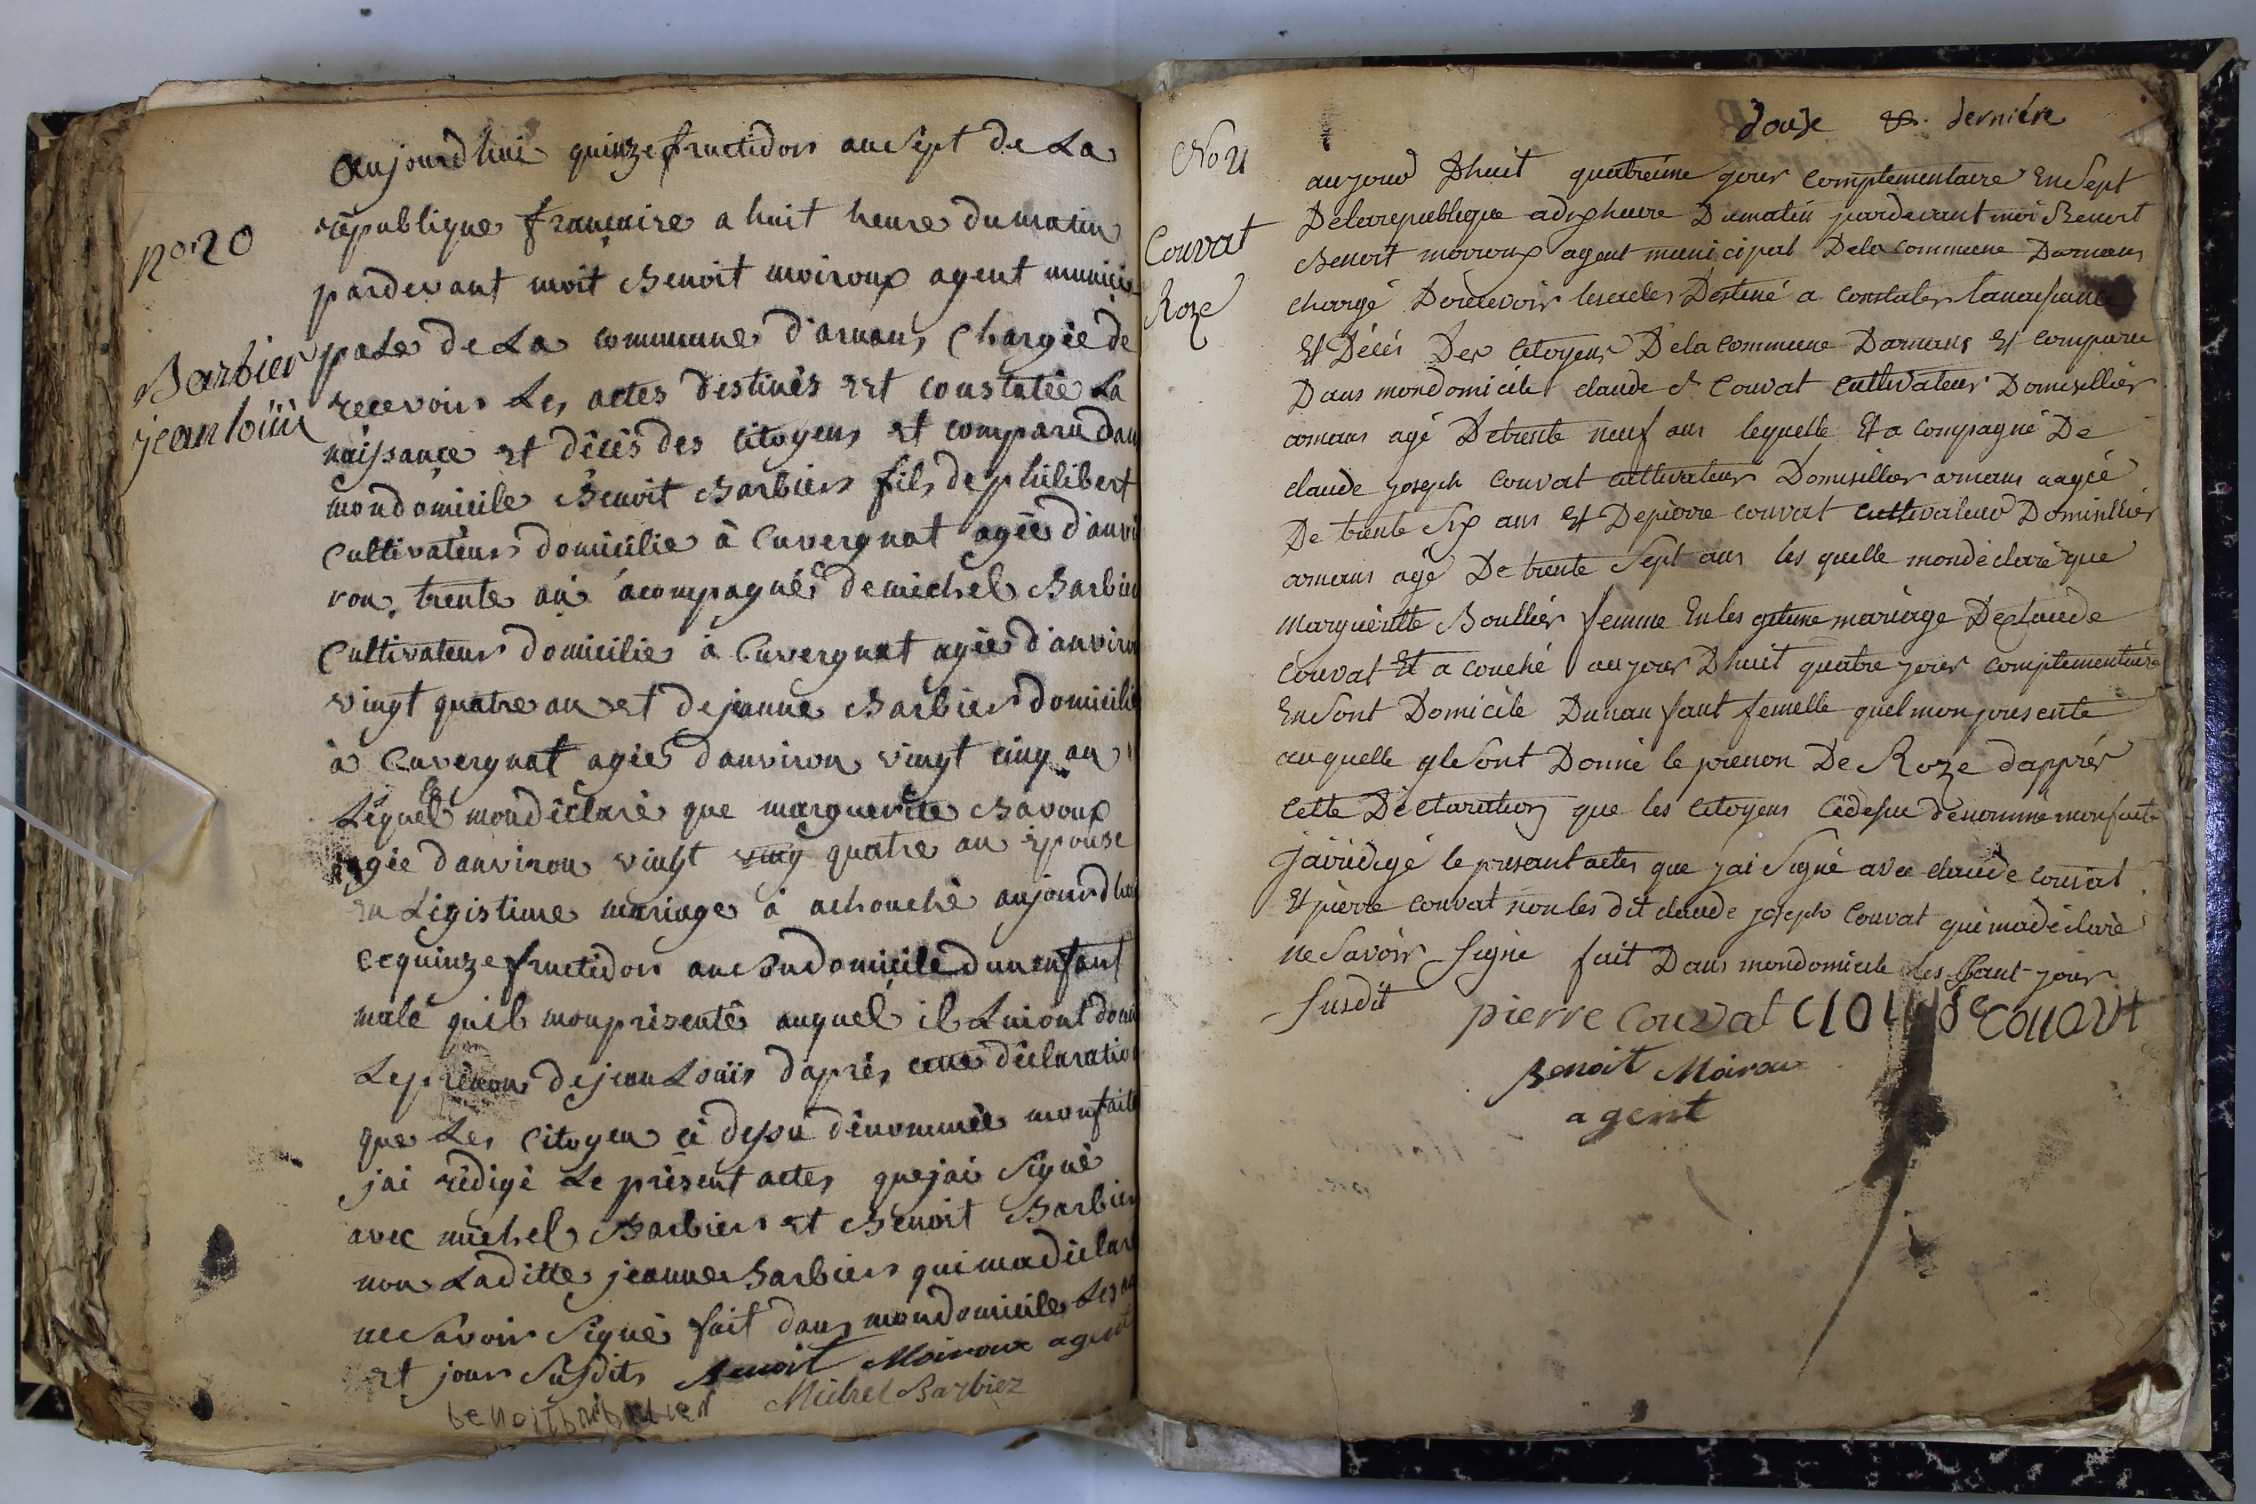 No 20
Barbier
jean loüis
aujourdhui quinze fructidor an sept de La
république françaire a huit heure du matin
pardevant moit Benoit moiroux agent munici
pale de La commune d'arnan, chargée de
recevoir Les actes destinés est constatée La
naissance et décès des citoyens et comparu dan
mon domicile Benoit Barbier fils de philibert
Cultivateur domicilie à Cuvergnat agée d'anvi
ron, trente an acompagnée de michel Barbier
Cultivateur domicilie à Cuvergnat agée d'anviron
vingt quatre an et de jeanne Barbier domicilie
à Cuvergnat agée d'anviron vingt cinq an
Lequel mon déclaré que marguerite Bavoux
agée d'anviron vingt cinq quatre an épouse
en Légistime mariage à achouché aujourdhui
ce quinze fructidor an son domicile dun enfant
male quil mon présenté auquel il Lui ont donné
Le prénom de jean Louis d'après cette déclaration
que Les citoyen ci dessu dénommée mon faite
jai rédigé Le présent actes que jai signé
avec michel Barbier et Benoit Barbier
non Laditte jeanne Barbier qui ma déclaré
ne savoir signé fait dans mon domicile Les an
et jour susdits Benoit Moiroux agent
benoit barbier Michel Barbiez
douze & dernière
No 21
Couvat
Roze
aujour Dhuit quatreime jour complementaire En sept
De la republique a dix heure Du matin pardevant moi Benoit
Benoit moiroux agent municipal De la commune Darnans
chargé De recevoir les actes Destiné a constater la naissance
Et Décés Des citoyens De la commune Darnans Et comparu
Dans mon domicile claude Couvat cultivateur Domisillier
arnans agé De trente neuf ans lequelle Et a compagné De
claude joseph Couvat cultivateur Domisillier arnans aagée
De trente six ans Et De pierre couvat cultivateur Domisillier
arnans agé De trente sept ans les quelle mon déclaré que
marguéritte Boullier femme En les gitime mariage De claude
couvat Et a couché aujour Dhuit quatre jour complementaire
En sont Domicile Dunan fant femelle quel mon presente
auquelle yle sont Donné le prenon De Roze dapprés
cette Déclaration que les citoyens cédesue dénommé mon fait
jai rédigé le presant actes que jai signé avec claude couvat
Et pierre couvat non les dit claude joseph Couvat qui ma déclaré
ne savoir signe fait Dans mon domicile les jour
susdit pierre couvat cloude couavt
Benoit Moiroux
agent